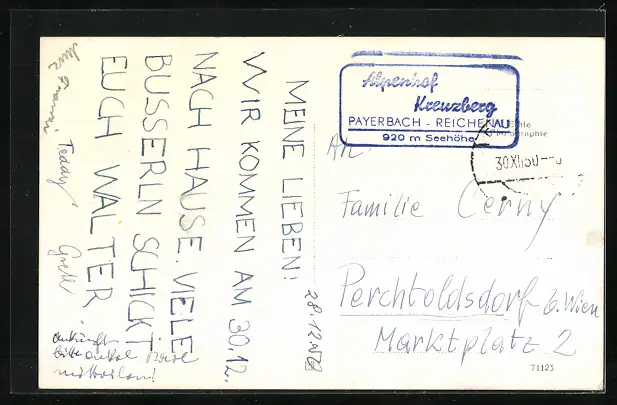 MEINE LIEBEN!
WIR KOMMEN AM 30.12.
NACH HAUSE. VIELE
BUSSERLN SCHICKT
EUCH WALTER
Teddy
Gretl
Ankunft
bitte Onkel
mitteilen!
28.12.
Alpenhof
Kreuzberg
PAYERBACH - REICHENAU
920 m Seehöhe
30.XII.50
An
Familie Cerny
Perchtoldsdorf b. Wien
Marktplatz 2
71125